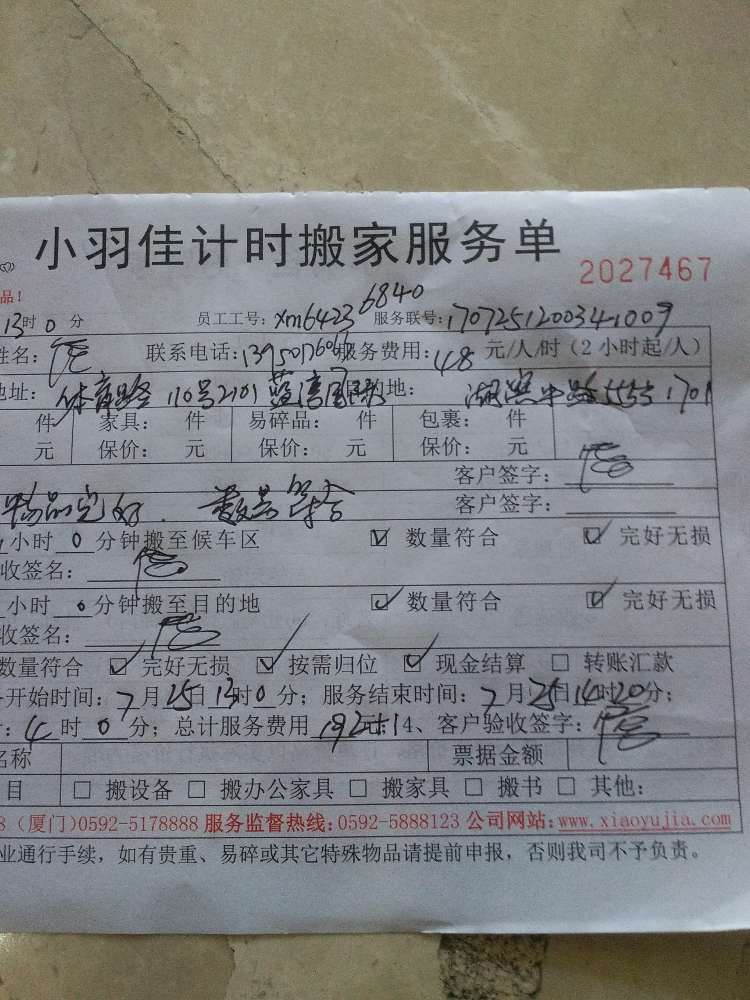 小羽佳计时搬家服务单
2027467
品!
13时0分 员工工号:xm6423 6840 服务联号:170725120034-1009
姓名: 联系电话: 服务费用:48元/人/时(2小时起/人)
地址:体育路110号2101蓝湾国 的地:湖滨中路 1701
件 家具: 件 易碎品: 件 包裹: 件
元 保价: 元 保价: 元 保价: 元
客户签字:
物品完好. 数量符合 客户签字:
小时0分钟搬至候车区 ☑ 数量符合 ☑ 完好无损
收签名:
小时0分钟搬至目的地 ☑ 数量符合 ☑ 完好无损
收签名:
数量符合 ☑ 完好无损 ☑ 按需归位 ☑ 现金结算 □ 转账汇款
开始时间:7月25日13时0分;服务结束时间:7月25日14时20分;
:4时0分;总计服务费用192 14、客户验收签字:
名称 票据金额
目 □ 搬设备 □ 搬办公家具 □ 搬家具 □ 搬书 □ 其他:
8(厦门)0592-5178888 服务监督热线:0592-5888123 公司网站:www.xiaoyujia.com
业通行手续,如有贵重、易碎或其它特殊物品请提前申报,否则我司不予负责。